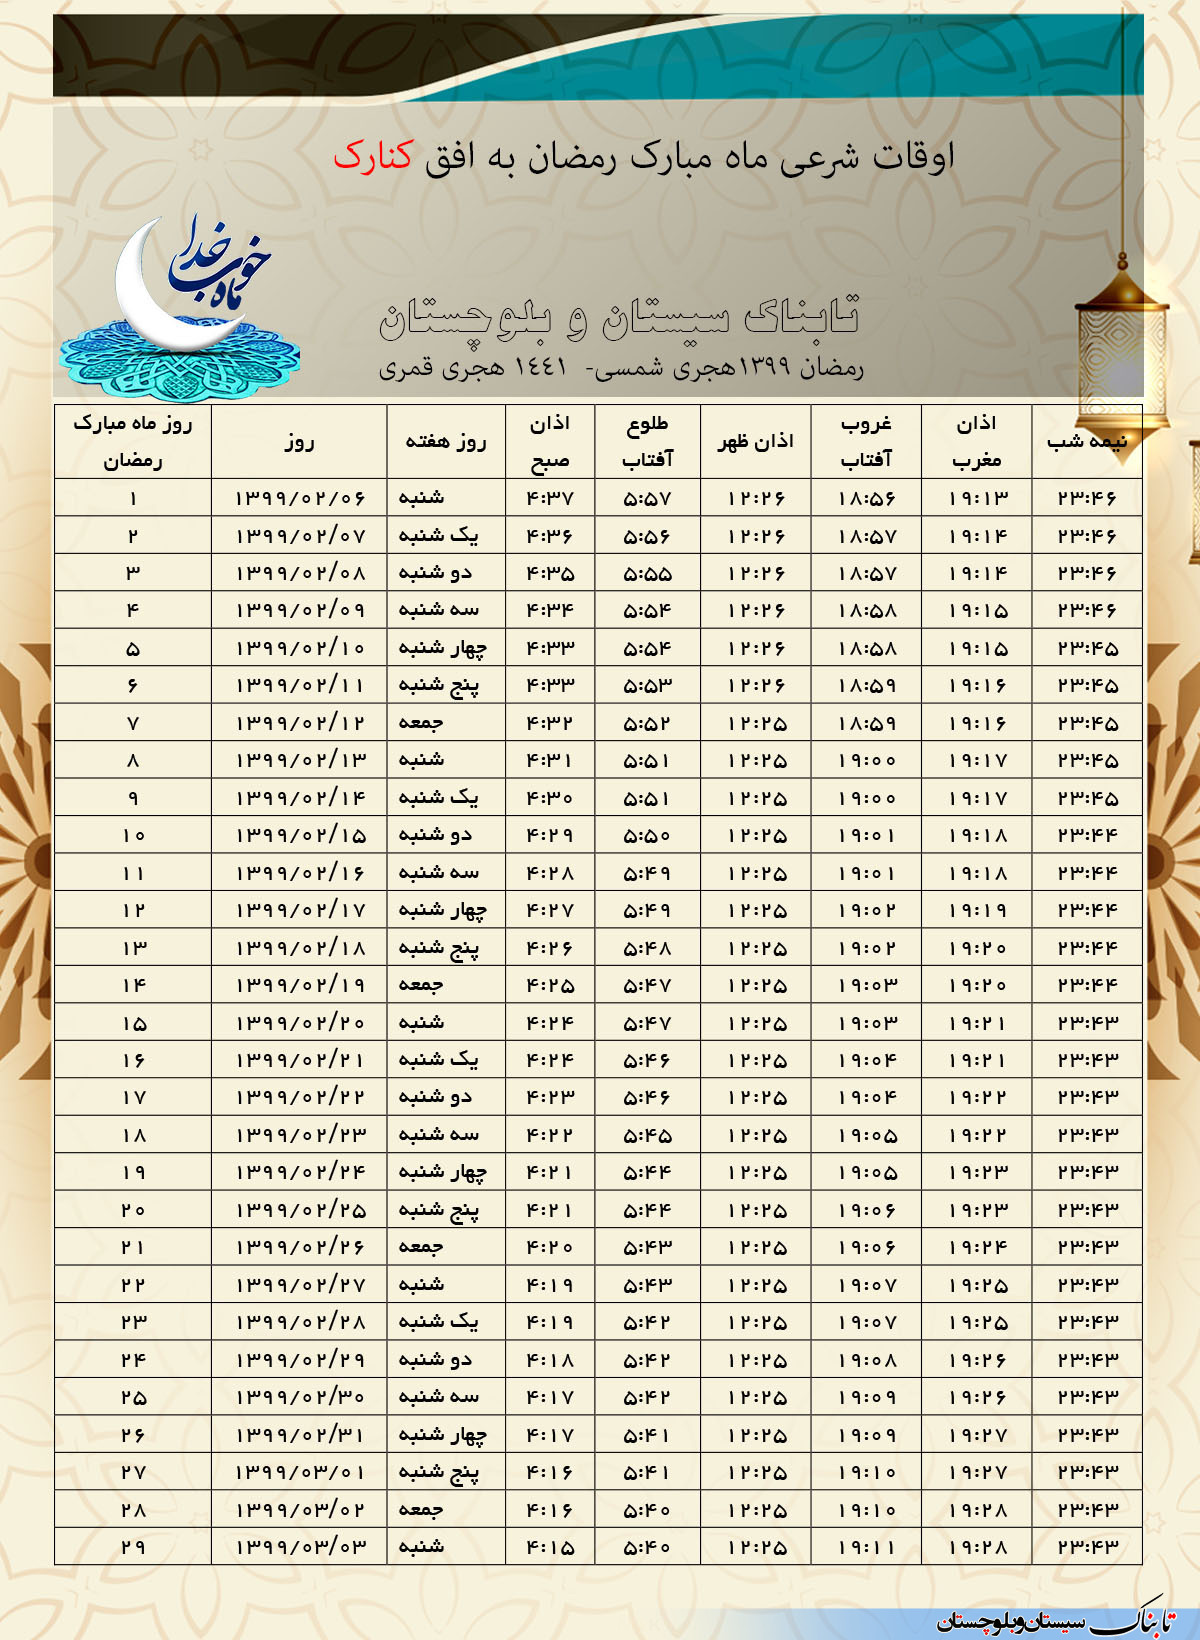 اوقات شرعی ماه مبارک رمضان به افق کنارک
ماه خوب خدا
تابناک سیستان و بلوچستان
رمضان ۱۳۹۹هجری شمسی- ۱٤٤۱ هجری قمری
روز ماه مبارک رمضان روز روز هفته اذان صبح طلوع آفتاب اذان ظهر غروب آفتاب اذان مغرب نیمه شب
۱ ۱۳۹۹/۰۲/۰۶ شنبه ۴:۳۷ ۵:۵۷ ۱۲:۲۶ ۱۸:۵۶ ۱۹:۱۳ ۲۳:۴۶
۲ ۱۳۹۹/۰۲/۰۷ یک شنبه ۴:۳۶ ۵:۵۶ ۱۲:۲۶ ۱۸:۵۷ ۱۹:۱۴ ۲۳:۴۶
۳ ۱۳۹۹/۰۲/۰۸ دو شنبه ۴:۳۵ ۵:۵۵ ۱۲:۲۶ ۱۸:۵۷ ۱۹:۱۴ ۲۳:۴۶
۴ ۱۳۹۹/۰۲/۰۹ سه شنبه ۴:۳۴ ۵:۵۴ ۱۲:۲۶ ۱۸:۵۸ ۱۹:۱۵ ۲۳:۴۶
۵ ۱۳۹۹/۰۲/۱۰ چهار شنبه ۴:۳۳ ۵:۵۴ ۱۲:۲۶ ۱۸:۵۸ ۱۹:۱۵ ۲۳:۴۵
۶ ۱۳۹۹/۰۲/۱۱ پنج شنبه ۴:۳۳ ۵:۵۳ ۱۲:۲۶ ۱۸:۵۹ ۱۹:۱۶ ۲۳:۴۵
۷ ۱۳۹۹/۰۲/۱۲ جمعه ۴:۳۲ ۵:۵۲ ۱۲:۲۵ ۱۸:۵۹ ۱۹:۱۶ ۲۳:۴۵
۸ ۱۳۹۹/۰۲/۱۳ شنبه ۴:۳۱ ۵:۵۱ ۱۲:۲۵ ۱۹:۰۰ ۱۹:۱۷ ۲۳:۴۵
۹ ۱۳۹۹/۰۲/۱۴ یک شنبه ۴:۳۰ ۵:۵۱ ۱۲:۲۵ ۱۹:۰۰ ۱۹:۱۷ ۲۳:۴۵
۱۰ ۱۳۹۹/۰۲/۱۵ دو شنبه ۴:۲۹ ۵:۵۰ ۱۲:۲۵ ۱۹:۰۱ ۱۹:۱۸ ۲۳:۴۴
۱۱ ۱۳۹۹/۰۲/۱۶ سه شنبه ۴:۲۸ ۵:۴۹ ۱۲:۲۵ ۱۹:۰۱ ۱۹:۱۸ ۲۳:۴۴
۱۲ ۱۳۹۹/۰۲/۱۷ چهار شنبه ۴:۲۷ ۵:۴۹ ۱۲:۲۵ ۱۹:۰۲ ۱۹:۱۹ ۲۳:۴۴
۱۳ ۱۳۹۹/۰۲/۱۸ پنج شنبه ۴:۲۶ ۵:۴۸ ۱۲:۲۵ ۱۹:۰۲ ۱۹:۲۰ ۲۳:۴۴
۱۴ ۱۳۹۹/۰۲/۱۹ جمعه ۴:۲۵ ۵:۴۷ ۱۲:۲۵ ۱۹:۰۳ ۱۹:۲۰ ۲۳:۴۴
۱۵ ۱۳۹۹/۰۲/۲۰ شنبه ۴:۲۴ ۵:۴۷ ۱۲:۲۵ ۱۹:۰۳ ۱۹:۲۱ ۲۳:۴۳
۱۶ ۱۳۹۹/۰۲/۲۱ یک شنبه ۴:۲۴ ۵:۴۶ ۱۲:۲۵ ۱۹:۰۴ ۱۹:۲۱ ۲۳:۴۳
۱۷ ۱۳۹۹/۰۲/۲۲ دو شنبه ۴:۲۳ ۵:۴۶ ۱۲:۲۵ ۱۹:۰۴ ۱۹:۲۲ ۲۳:۴۳
۱۸ ۱۳۹۹/۰۲/۲۳ سه شنبه ۴:۲۲ ۵:۴۵ ۱۲:۲۵ ۱۹:۰۵ ۱۹:۲۲ ۲۳:۴۳
۱۹ ۱۳۹۹/۰۲/۲۴ چهار شنبه ۴:۲۱ ۵:۴۴ ۱۲:۲۵ ۱۹:۰۵ ۱۹:۲۳ ۲۳:۴۳
۲۰ ۱۳۹۹/۰۲/۲۵ پنج شنبه ۴:۲۱ ۵:۴۴ ۱۲:۲۵ ۱۹:۰۶ ۱۹:۲۳ ۲۳:۴۳
۲۱ ۱۳۹۹/۰۲/۲۶ جمعه ۴:۲۰ ۵:۴۳ ۱۲:۲۵ ۱۹:۰۶ ۱۹:۲۴ ۲۳:۴۳
۲۲ ۱۳۹۹/۰۲/۲۷ شنبه ۴:۱۹ ۵:۴۳ ۱۲:۲۵ ۱۹:۰۷ ۱۹:۲۵ ۲۳:۴۳
۲۳ ۱۳۹۹/۰۲/۲۸ یک شنبه ۴:۱۹ ۵:۴۲ ۱۲:۲۵ ۱۹:۰۷ ۱۹:۲۵ ۲۳:۴۳
۲۴ ۱۳۹۹/۰۲/۲۹ دو شنبه ۴:۱۸ ۵:۴۲ ۱۲:۲۵ ۱۹:۰۸ ۱۹:۲۶ ۲۳:۴۳
۲۵ ۱۳۹۹/۰۲/۳۰ سه شنبه ۴:۱۷ ۵:۴۲ ۱۲:۲۵ ۱۹:۰۹ ۱۹:۲۶ ۲۳:۴۳
۲۶ ۱۳۹۹/۰۲/۳۱ چهار شنبه ۴:۱۷ ۵:۴۱ ۱۲:۲۵ ۱۹:۰۹ ۱۹:۲۷ ۲۳:۴۳
۲۷ ۱۳۹۹/۰۳/۰۱ پنج شنبه ۴:۱۶ ۵:۴۱ ۱۲:۲۵ ۱۹:۱۰ ۱۹:۲۷ ۲۳:۴۳
۲۸ ۱۳۹۹/۰۳/۰۲ جمعه ۴:۱۶ ۵:۴۰ ۱۲:۲۵ ۱۹:۱۰ ۱۹:۲۸ ۲۳:۴۳
۲۹ ۱۳۹۹/۰۳/۰۳ شنبه ۴:۱۵ ۵:۴۰ ۱۲:۲۵ ۱۹:۱۱ ۱۹:۲۸ ۲۳:۴۳
تابناک سیستان و بلوچستان